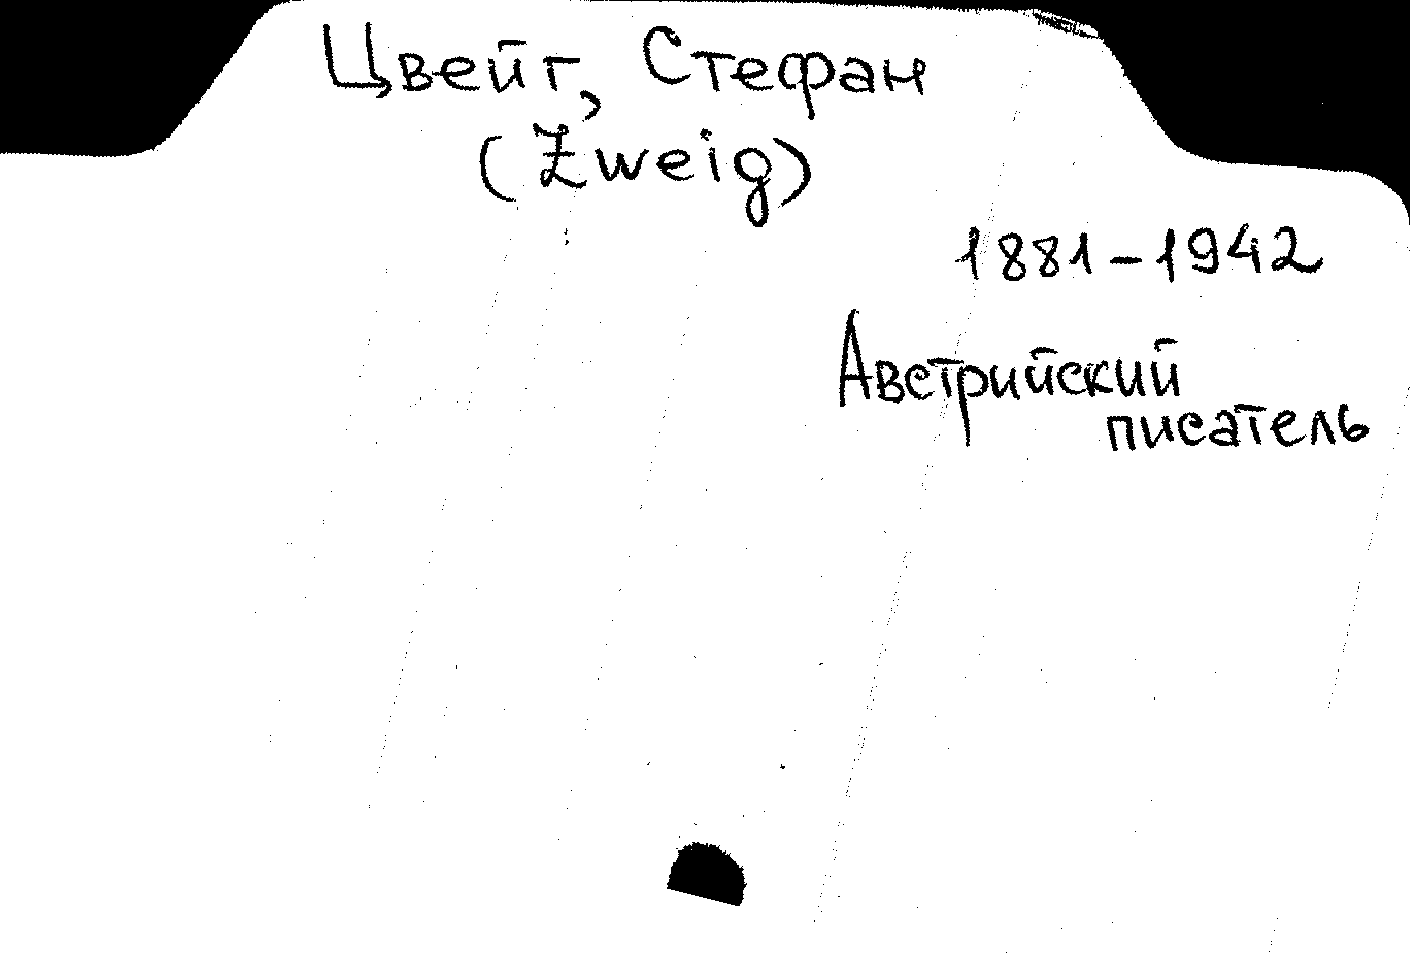 Цвейг, Стефан
(Zweig)
1881-1942
Австрийский
писатель